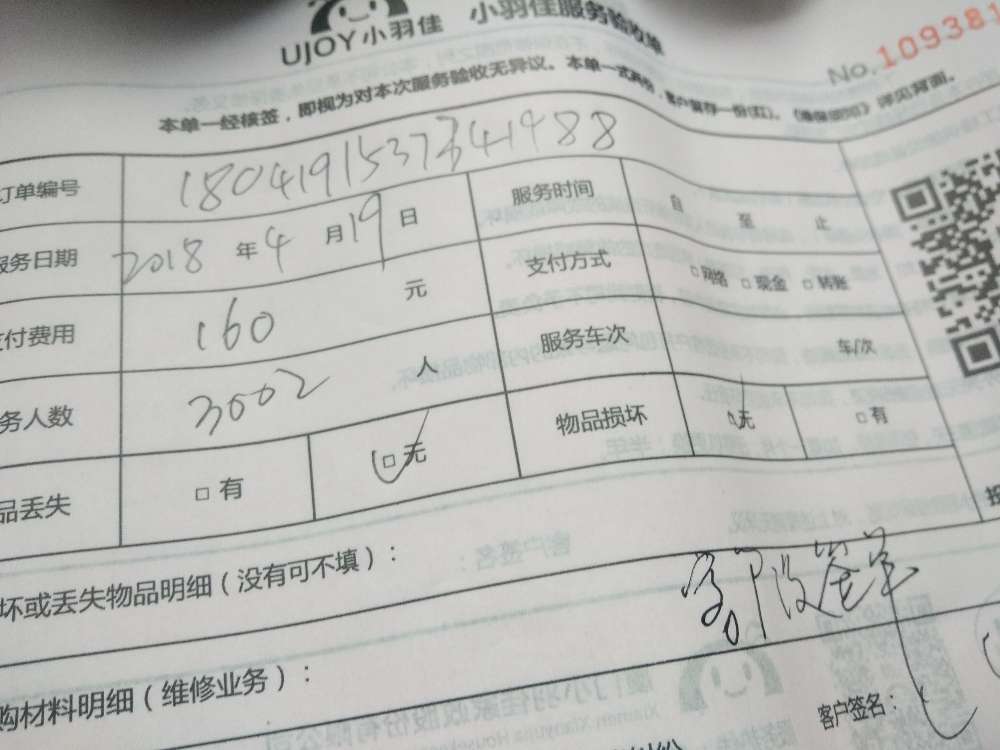 UJOY小羽佳 小羽佳服务验收单
No.109381
本单一经核签，即视为对本次服务验收无异议。本单一式两份，客户留存一份(红)。《维保细则》详见背面。
订单编号
服务日期 2018 年 4 月 19 日 服务时间 自 至 止
支付费用 160 元 支付方式 □网络 □现金 □转账
务人数 3002 人 服务车次 车/次
品丢失 □有 □无 物品损坏 □无 □有
坏或丢失物品明细（没有可不填）：
购材料明细（维修业务）：
客户签名：